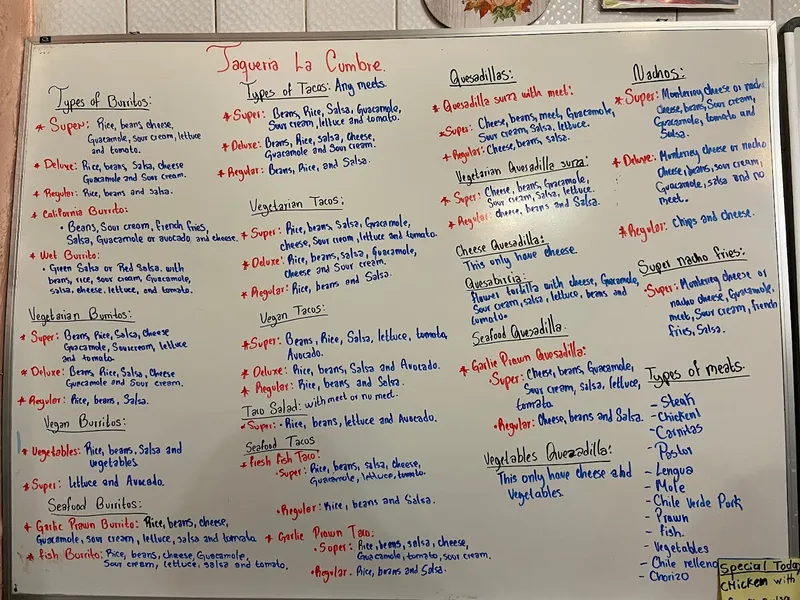 Taqueria La Cumbre.
Types of Burritos:
* Super: Rice, beans, cheese,
Guacamole, sour cream, lettuce
and tomato.
* Deluxe: Rice, beans, Salsa, cheese
Guacamole and Sour cream.
* Regular: Rice, beans and salsa.
* California Burrito:
• Beans, Sour cream, french fries,
Salsa, Guacamole or avocado, and cheese.
* Wet Burrito:
• Green Salsa or Red Salsa. with
beans, rice, sour cream, Guacamole,
salsa, cheese, lettuce, and tomato.
Vegetarian Burritos:
* Super: Beans, Rice, Salsa, Cheese
Guacamole, Sourcream, lettuce
and tomato.
* Deluxe: Beans, Rice, Salsa, Cheese
Guacamole and Sour cream.
* Regular: Rice, beans, Salsa.
Vegan Burritos:
* Vegetables: Rice, beans, Salsa and
vegetables.
* Super: Lettuce and Avocado.
Seafood Burritos:
* Garlic Prawn Burrito: Rice, beans, cheese,
Guacamole, sour cream, lettuce, salsa and tomato.
* fish Burrito: Rice, beans, cheese, Guacamole,
Sour cream, lettuce, salsa and tomato.
Types of Tacos: Any meets.
* Super: Beans, Rice, Salsa, Guacamole,
Sour cream, lettuce and tomato.
* Deluxe: Beans, Rice, salsa, cheese,
Guacamole and Sour cream.
* Regular: Beans, Rice, and Salsa.
Vegetarian Tacos:
* Super: Rice, beans, Salsa, Guacamole,
cheese, Sour cream, lettuce and tomato.
* Deluxe: Rice, beans, salsa, Guacamole,
Cheese and Sour cream.
* Regular: Rice, beans and Salsa.
Vegan Tacos:
* Super: Beans, Rice, Salsa, lettuce, tomato,
Avocado.
* Deluxe: Rice, beans, Salsa and Avocado.
* Regular: Rice, beans and Salsa.
Taco Salad: with meet or no meet.
• Super: • Rice, beans, lettuce and Avocado.
Seafood Tacos
* fresh fish Taco:
• Super: Rice, beans, salsa, cheese,
Guacamole, lettuce, tomato.
• Regular: Rice, beans and Salsa.
* Garlic Prown Taco:
• Super: Rice, beans, salsa, cheese,
Guacamole, tomato, sour cream.
• Regular: Rice, beans and Salsa.
Quesadillas:
* Quesadilla suiza with meet:
* Super: Cheese, beans, meet, Guacamole,
Sour cream, salsa, lettuce.
* Regular: Cheese, beans, salsa.
Vegetarian Quesadilla suiza:
* Super: Cheese, beans, Guacamole,
Sour cream, Salsa, lettuce.
* Regular: Cheese, beans and Salsa.
Cheese Quesadilla:
This only have cheese.
Quesabirria:
flower tortilla with cheese, Guacamole,
Sour cream, salsa, lettuce, beans and
tomato.
Seafood Quesadilla.
* Garlic Prawn Quesadilla:
• Super: Cheese, beans, Guacamole,
Sour cream, salsa, lettuce,
tomato.
• Regular: Cheese, beans and Salsa.
Vegetables Quezadilla:
This only have cheese and
Vegetables.
Nachos:
* Super: Monterrey cheese or nacho
cheese, beans, Sour cream,
Guacamole, tomato and
Salsa.
* Deluxe: Monterrey cheese or nacho
cheese, beans, sour cream,
Guacamole, salsa and no
meet.
* Regular: Chips and cheese.
Super nacho fries:
• Super: Monterrey cheese or
nacho cheese, Guacamole,
meet, Sour cream, french
fries, Salsa.
Types of meats.
- Steak
- Chicken
- Carnitas
- Pastor
- Lengua
- Mole
- Chile Verde Pork
- Prown
- fish.
- Vegetables
- Chile relleno
- Chorizo
Special Today
Chicken with